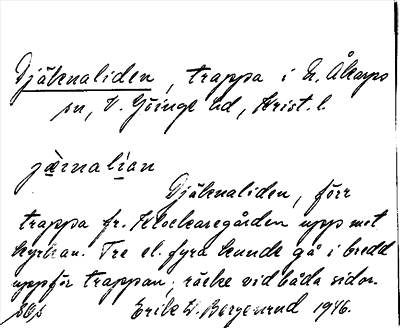 Djäknaliden, trappa i N. Åkarps
sn, V. Göinge hd, Krist. l.
jæ̀rnalìan
Djäknaliden, förr
trappa fr. Klockaregården upp mot
kyrkan. Tre el. fyra kunde gå i bredd
uppför trappan; räcke vid båda sidor.
Erik W. Bergenrud 1946.